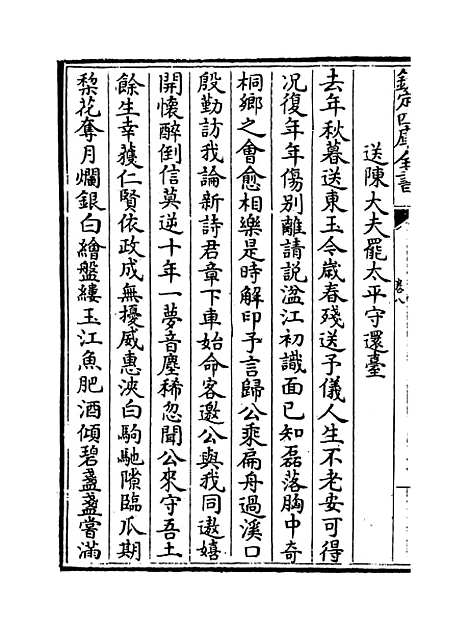 欽定四庫全書
卷八
送陳大夫罷太平守還臺
去年秋暮送東玉今嵗春殘送予儀人生不老安可得
况復年年傷别離請説湓江初識面已知磊落胸中奇
桐鄉之會愈相樂是時解印予言歸公乘扁舟過溪口
殷勤訪我論新詩君章下車始命客邀公與我同遨嬉
開懷醉倒信莫逆十年一夢音塵稀忽聞公來守吾土
餘生幸獲仁賢依政成無擾威惠浹白駒馳隙臨瓜期
梨花奪月爛銀白繪盤縷玉江魚肥酒傾碧盞盞嘗滿